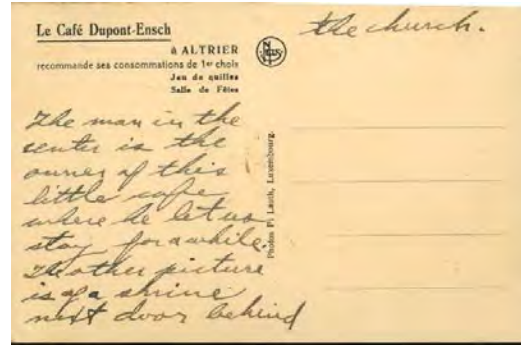 Le Café Dupont-Ensch
à ALTRIER
recommande ses consommations de 1er choix
Jeu de quilles
Salle de Fêtes
The man in the
center is the
owner of this
little cafe
where he let us
stay for awhile.
The other picture
is of a shrine
next door behind
the church.
Photos P. Lauth, Luxembourg.